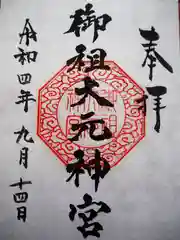 奉拝
御祖大元神宮
令和四年九月十四日